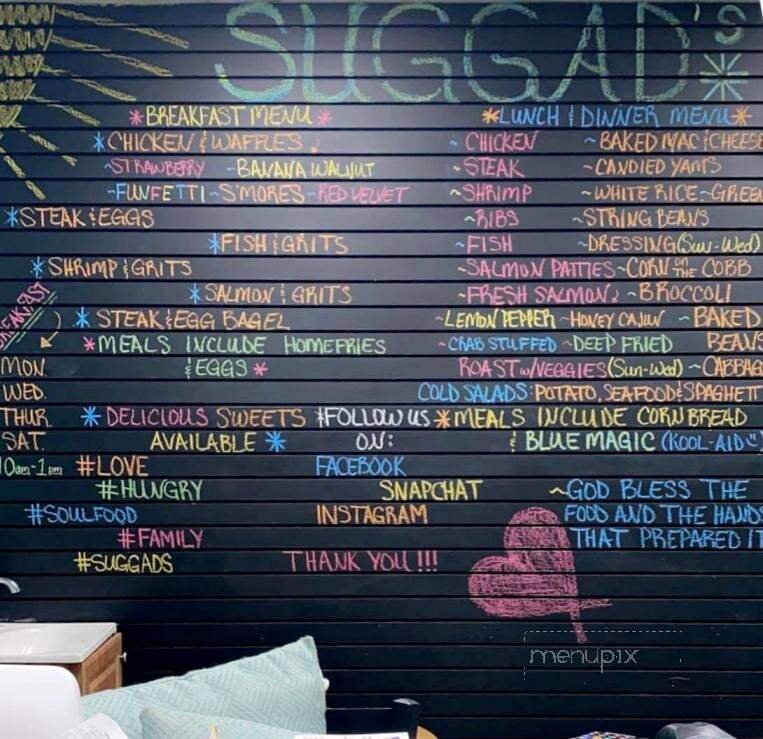 SUGGAD'S
*BREAKFAST MENU*
*CHICKEN & WAFFLES
~STRAWBERRY ~BANANA WALNUT
~FUNFETTI ~S'MORES ~RED VELVET
*STEAK & EGGS
*FISH & GRITS
*SHRIMP & GRITS
*SALMON & GRITS
*STEAK & EGG BAGEL
*MEALS INCLUDE HOMEFRIES
& EGGS*
MON.
WED.
THUR.
SAT
10am-1pm
*DELICIOUS SWEETS
AVAILABLE*
#LOVE
#HUNGRY
#SOULFOOD
#FAMILY
#SUGGADS
#FOLLOW US
ON:
FACEBOOK
SNAPCHAT
INSTAGRAM
THANK YOU!!!
*LUNCH & DINNER MENU*
~CHICKEN ~BAKED MAC & CHEESE
~STEAK ~CANDIED YAMS
~SHRIMP ~WHITE RICE ~GREE
~RIBS ~STRING BEANS
~FISH ~DRESSING (Sun-Wed)
~SALMON PATTIES ~CORN ON THE COBB
~FRESH SALMON: ~BROCCOLI
~LEMON PEPPER ~HONEY CAJUN ~BAKED
~CRAB STUFFED ~DEEP FRIED BEANS
ROAST w/VEGGIES (Sun-Wed) ~CABBAG
COLD SALADS: POTATO, SEAFOOD & SPAGHETT
*MEALS INCLUDE CORNBREAD
& BLUE MAGIC (KOOL-AID")
~GOD BLESS THE
FOOD AND THE HANDS
THAT PREPARED IT
menupix